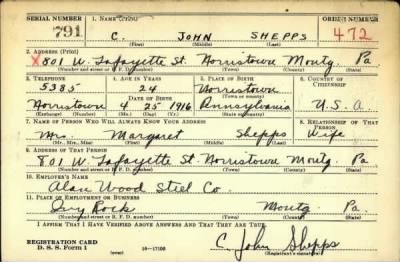 SERIAL NUMBER 1. NAME (Print) ORDER NUMBER
791 C. JOHN SHEPPS 472
(First) (Middle) (Last)
2. ADDRESS (Print)
X 801 W. Lafayette St. Norristown Montg. Pa
(Number and street or R. F. D. number) (Town) (County) (State)
3. TELEPHONE 4. AGE IN YEARS 5. PLACE OF BIRTH 6. COUNTRY OF CITIZENSHIP
5385 24 Norristown
DATE OF BIRTH (Town or county)
Norristown 4 25 1916 Pennsylvania U.S.A
(Exchange) (Number) (Mo.) (Day) (Yr.) (State or country)
7. NAME OF PERSON WHO WILL ALWAYS KNOW YOUR ADDRESS 8. RELATIONSHIP OF THAT PERSON
Mrs. Margaret Shepps Wife
(Mr., Mrs., Miss) (First) (Middle) (Last)
9. ADDRESS OF THAT PERSON
801 W. Lafayette St. Norristown Montg. Pa
(Number and street or R. F. D. number) (Town) (County) (State)
10. EMPLOYER'S NAME
Alan Wood Steel Co.
11. PLACE OF EMPLOYMENT OR BUSINESS
Ivy Rock Montg. Pa
(Number and street or R. F. D. number) (Town) (County) (State)
I AFFIRM THAT I HAVE VERIFIED ABOVE ANSWERS AND THAT THEY ARE TRUE.
REGISTRATION CARD
D. S. S. Form 1 (over) 16—17105 C. John Shepps